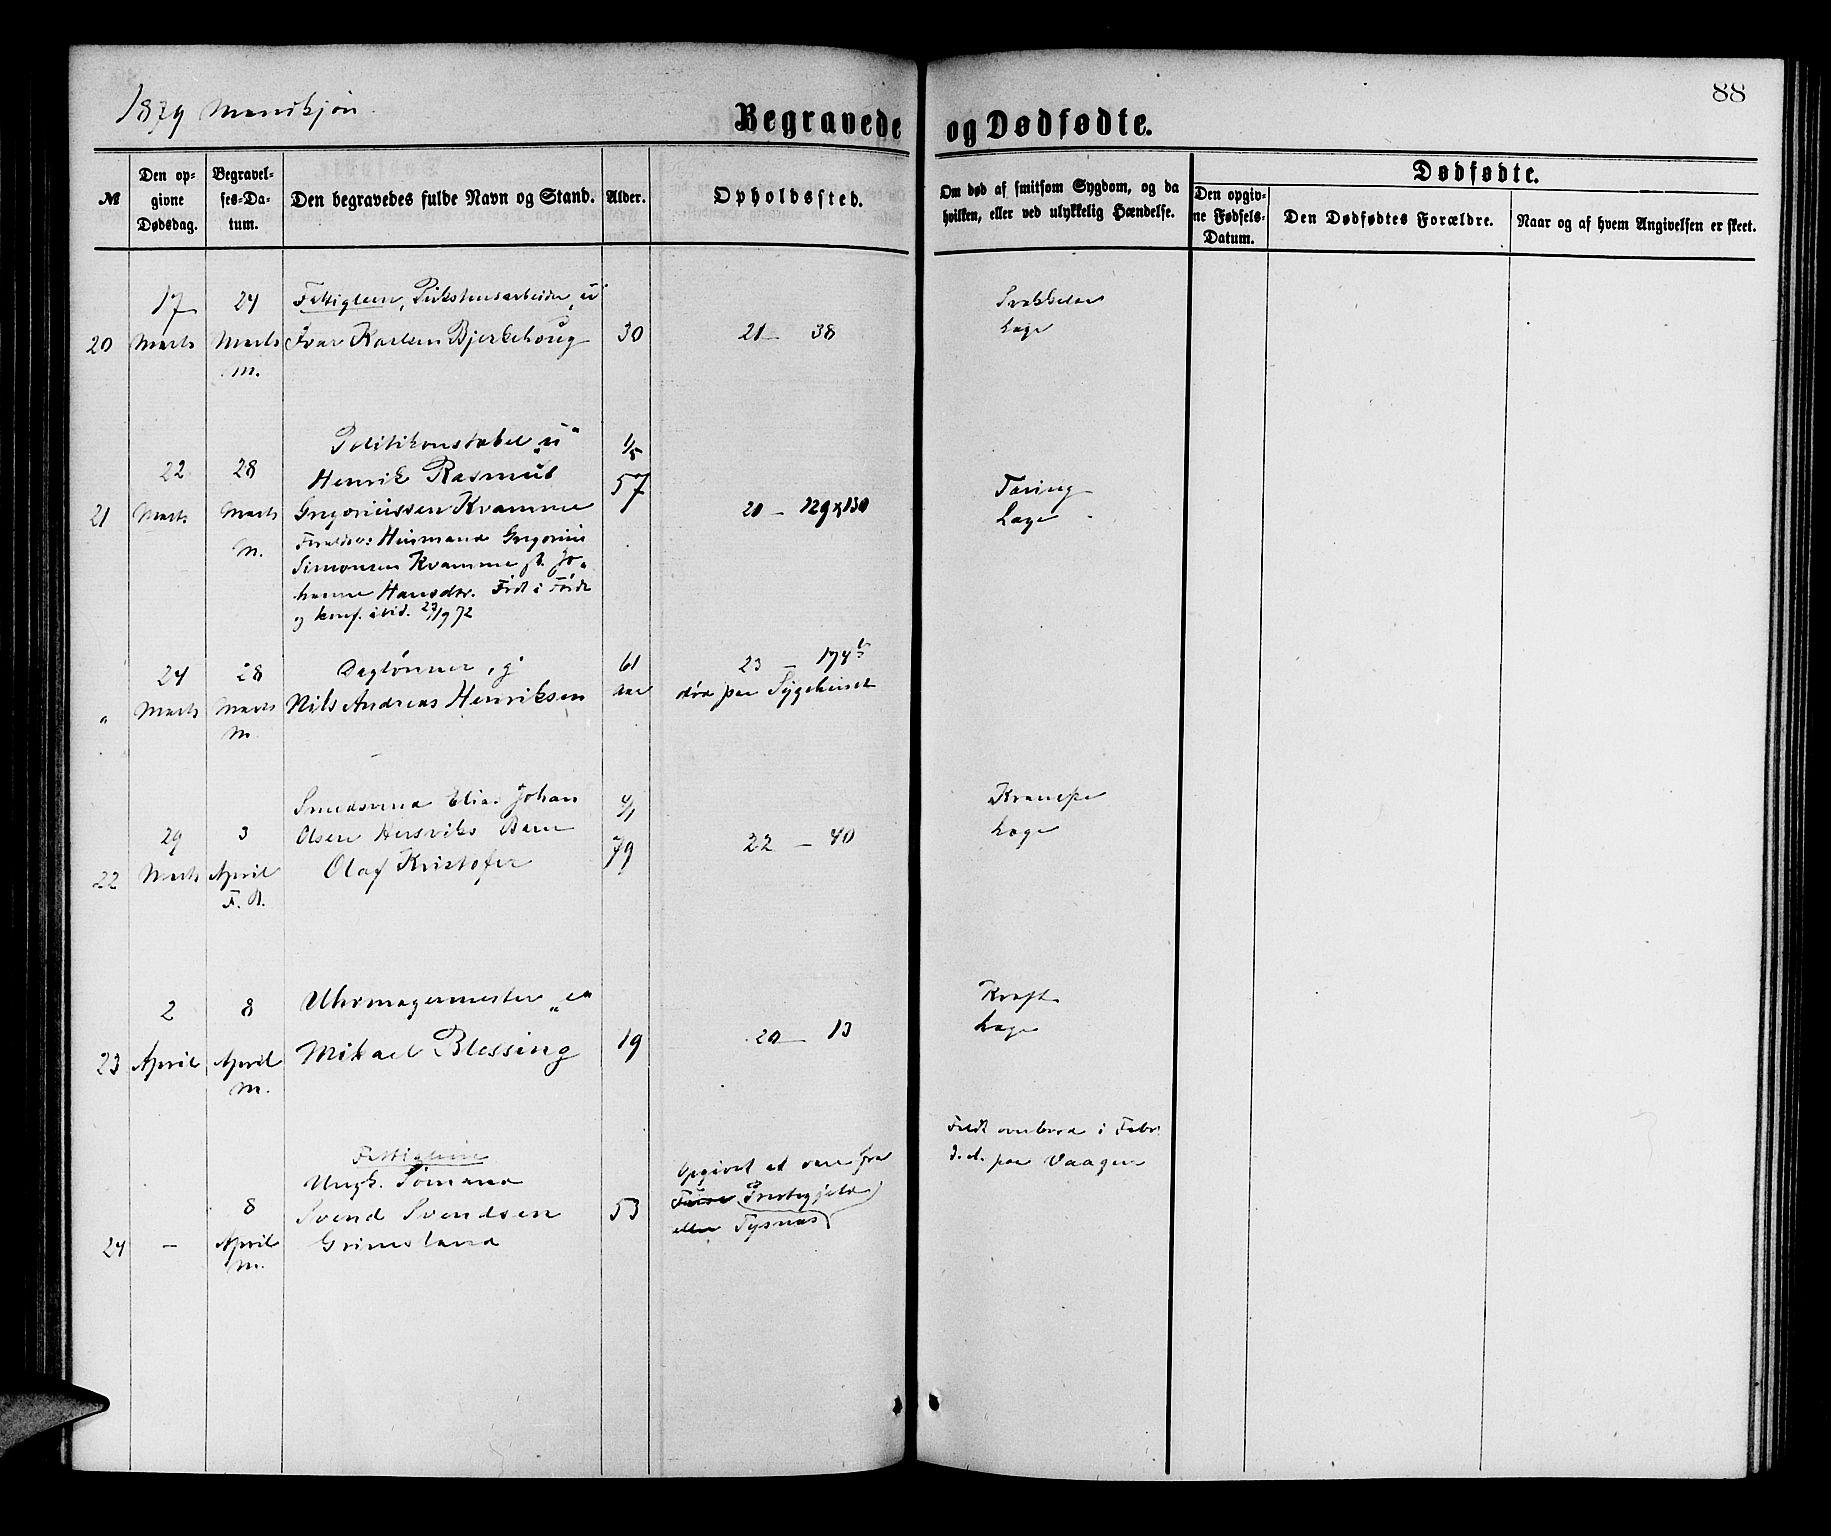 1879 Mandkjøn.
88
Begravede og Dødfødte.
№
Den op-
givne
Dødsdag.
Begravel-
ses-Da-
tum.
Den begravedes fulde Navn og Stand.
Alder.
Opholdssted.
Om død af smitsom Sygdom, og da
hvilken, eller ved ulykkelig Hændelse.
Dødfødte.
Den opgiv-
ne Fødsels-
Datum.
Den Dødfødtes Forældre.
Naar og af hvem Angivelsen er skeet.
20
17
Marts
24
Marts
M.
Fattiglem,
Ivar Karlsen Bjerkehoug
30
21 — 38
Læge
21
22
Marts
28
Marts
M.
Politikonstabel "u"
Henrik Rasmus
Gregoriussen Kvamme
Forældre: Huusmand Gregorius
Simonsen Kvamme og Jo-
hanne Hansdtr. Født i Førde
og konf. ibid. 29/9 72
1/5
57
20 — 129 x 130
Læge
"
24
Marts
28
Marts
M.
Daglønner, g
Nils Andreas Henriksen
61
aar
23 — 174 b
død paa Sygehuset
22
29
Marts
3
April
F. A.
Smedsvend Elias Johan
Olsen Hersviks Barn
Olaf Kristofer
4/1
79
22 — 40
Krampe
Læge
23
2
April
8
April
M.
Uhrmagermester "e"
Mikael Blessing
19
20 — 13
Kræft
Læge
24
—
8
April
M.
Fattiglem
Ungk. Sømand
Svend Svendsen
Grimsland
53
Opgivet at være fra
Fuse Præstegjeld
eller Tysnæs
Faldt overbord i Febr.
d. A. paa Vaagen